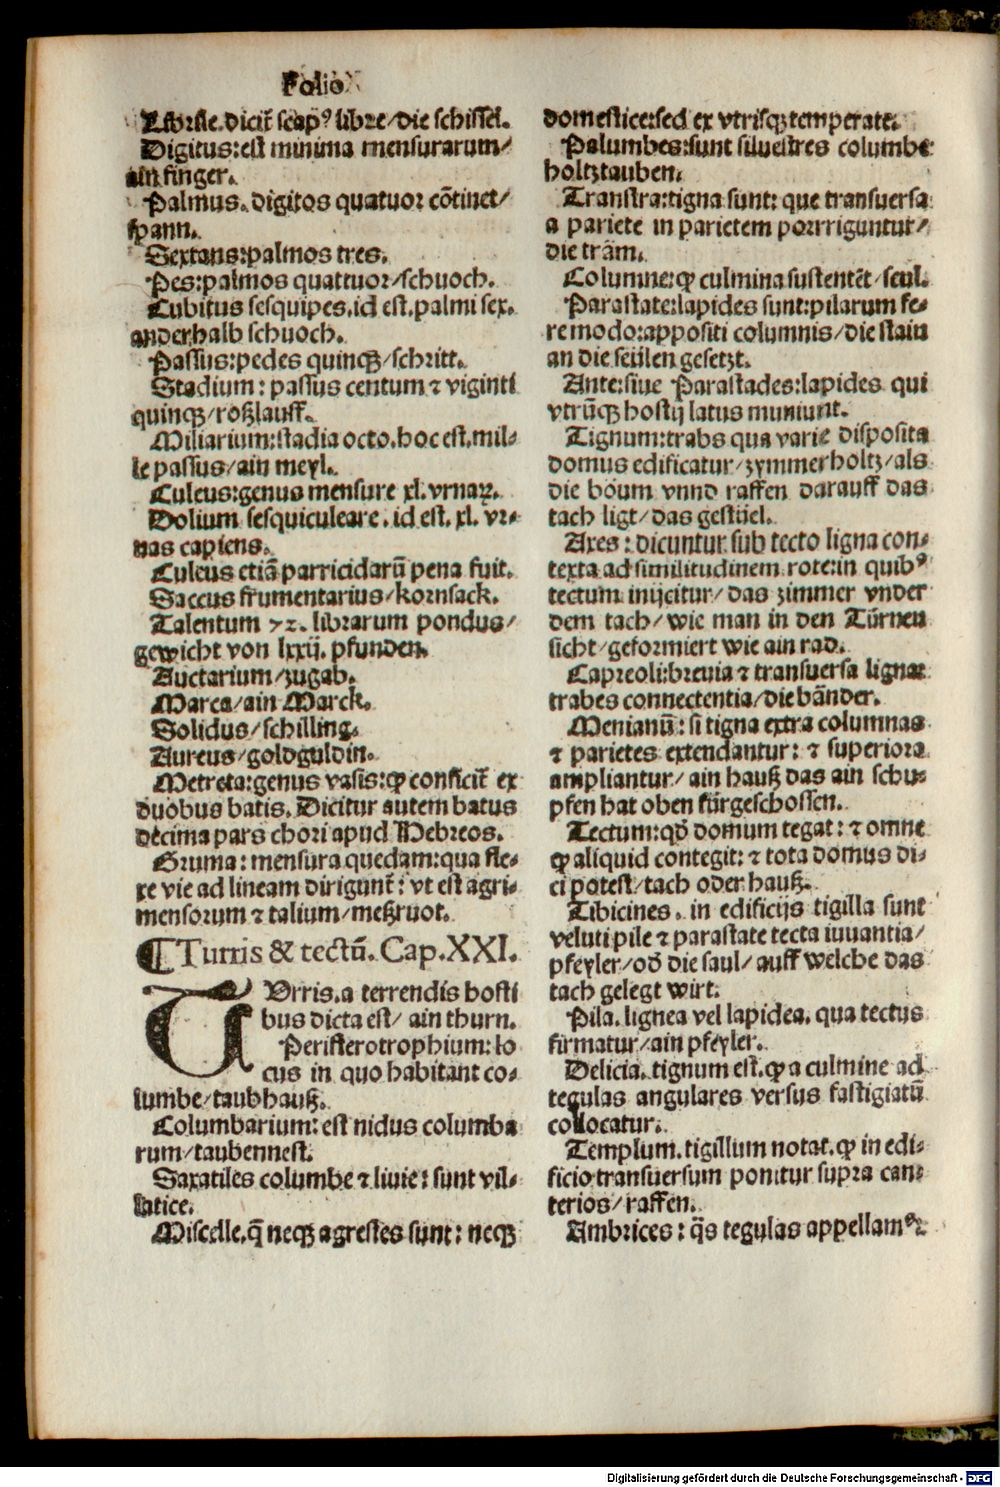 Folio
Librile. dicit̃ scapꝰ libre/die schissel.
Digitus:est minima mensurarum/
ain finger.
Palmus. digitos quatuor cõtinet/
spann.
Sextans:palmos tres.
Pes:palmos quattuor/schuoch.
Cubitus sesquipes.id est.palmi sex.
anderhalb schuoch.
Passus:pedes quinqꝫ/schritt.
Stadium: passus centum ⁊ viginti
quinqꝫ/roßlauff.
Miliarium:stadia octo.hoc est.mil-
le passus/ain meyl.
Culeus:genus mensure xl. vrnaꝝ.
Dolium sesquiculeare. id est. xl. vr-
nas capiens.
Culeus etiã parricidarũ pena fuit.
Saccus frumentarius/kornsack.
Talentum 72. librarum pondus/
gewicht von lxxij. pfunden.
Auctarium/zugab.
Marca/ain Marck.
Solidus/schilling.
Aureus/goldguldin.
Metreta:genus vasis:ꝙ conficit̃ ex
duobus batis. Dicitur autem batus
decima pars chori apud Hebreos.
Gruma: mensura quedam:qua fle-
xe vie ad lineam dirigunt̃: vt est agri-
mensorum ⁊ talium/meßruot.
¶Turris & tectũ. Cap.XXI.
TVrris.a terrendis hosti
bus dicta est/ ain thurn.
Peristerotrophium:lo
cus in quo habitant co-
lumbe/taubhauß.
Columbarium: est nidus columba
rum/taubennest.
Saxatiles columbe ⁊ liuie: sunt vil-
latice.
Miscelle.q̃ neqꝫ agrestes sunt: neqꝫ
domestice:sed ex vtrisqꝫ temperate.
Palumbes:sunt siluestres columbe
holtztauben.
Transtra:tigna sunt: que transuersa
a pariete in parietem porrriguntur/
die träm.
Columne:ꝙ culmina sustentẽt/seul.
Parastate:lapides sunt:pilarum fe-
re modo:appositi columnis/die stain
an die seülen gesetzt.
Ante:siue Parastades:lapides qui
vtrũqꝫ hostij latus muniunt.
Tignum:trabs qua varie disposita
domus edificatur/zymmerholtz/als
die böum vnnd raffen darauff das
tach ligt/das gestüel.
Axes: dicuntur sub tecto ligna con-
texta ad similitudinem rote:in quibꝰ
tectum inijcitur/ das zimmer vnder
dem tach/ wie man in den Türnen
sicht/geformiert wie ain rad.
Capreoli:breuia ⁊ transuersa ligna:
trabes connectentia/die bänder.
Menianũ: si tigna extra columnas
⁊ parietes extendantur: ⁊ superiora
ampliantur/ ain hauß das ain schu-
pfen hat oben fürgeschossen.
Tectum:qď domum tegat: ⁊ omne
ꝙ aliquid contegit: ⁊ tota domus di-
ci potest/tach oder hauß.
Tibicines. in edificijs tigilla sunt
veluti pile ⁊ parastate tecta iuuantia/
pfeyler/oď die saul/ auff welche das
tach gelegt wirt.
Pila. lignea vel lapidea. qua tectus
firmatur/ain pfeyler.
Delicia. tignum est.ꝙ a culmine ad
tegulas angulares versus fastigiatũ
collocatur.
Templum.tigillum notat.ꝙ in edi-
ficio transuersum ponitur supra can-
terios/raffen.
Ambrices: q̃s tegulas appellamꝰ.